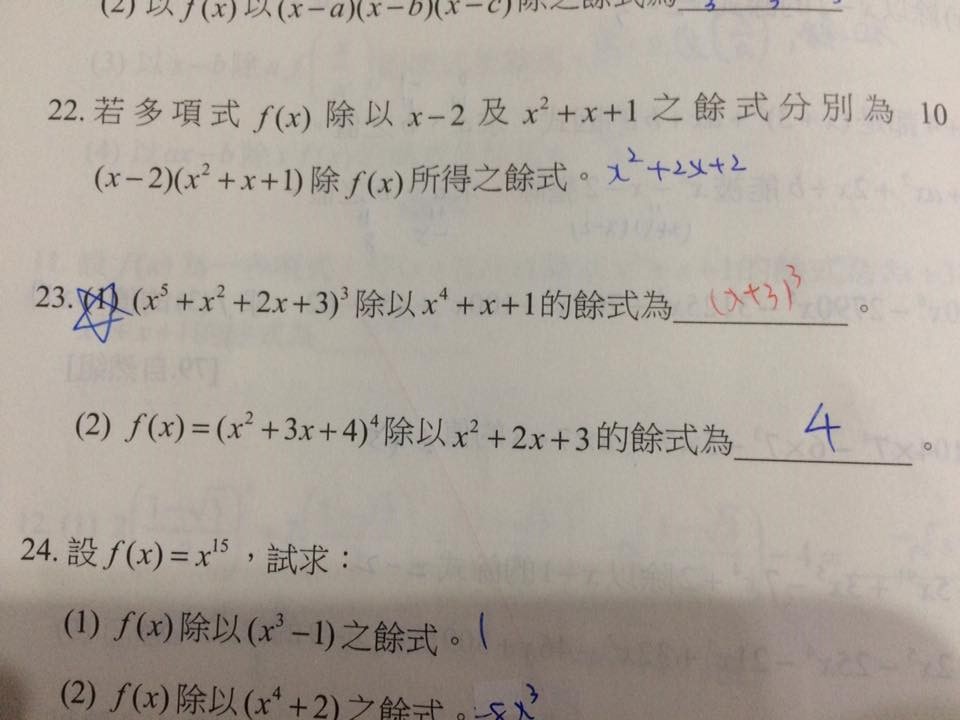 (2) 以 f(x) 以 (x−a)(x−b)(x−c) 除之餘式為
22. 若多項式 f(x) 除以 x−2 及 x²+x+1 之餘式分別為 10
(x−2)(x²+x+1) 除 f(x) 所得之餘式。 x²+2x+2
23. (1) (x⁵+x²+2x+3)³ 除以 x⁴+x+1 的餘式為 (x+3)³ 。
(2) f(x)=(x²+3x+4)⁴ 除以 x²+2x+3 的餘式為 4 。
24. 設 f(x)=x¹⁵，試求：
(1) f(x) 除以 (x³−1) 之餘式。 1
(2) f(x) 除以 (x⁴+2) 之餘式。 −8x³